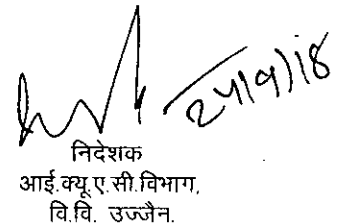 24/9/18
निदेशक
आई.क्यू.ए.सी.विभाग,
वि.वि. उज्जैन.